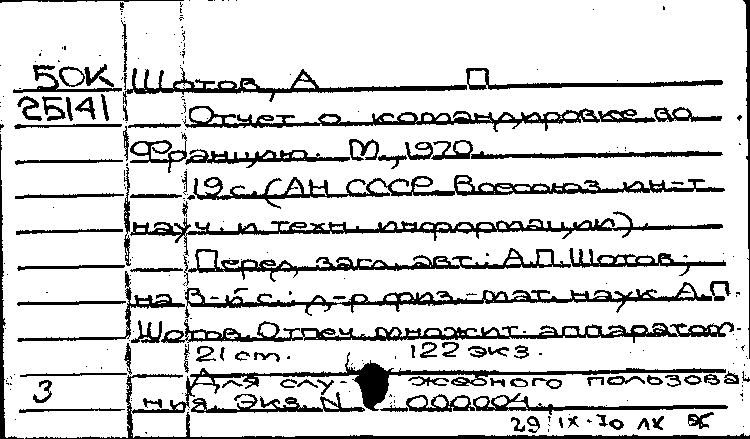 50К Шотов, А П
25141 Отчет о командировке во
Францию. М., 1970.
19 с. (АН СССР Всесоюз ин-т
науч. и техн. информации).
Перед загл. авт.: А.П.Шотов;
на 3-й с.: д-р физ.-мат. наук А.П.
Шотов. Отпеч. множит. аппаратом
21 cm. 122 экз.
Для слу- жебного пользова
3 ния. Экз. N 000004.
29 IX-70 ЛК